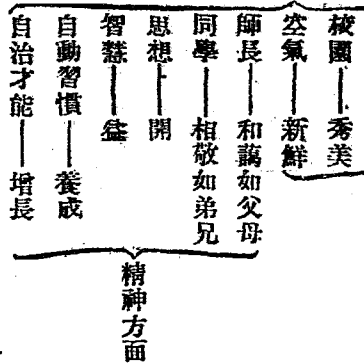 校園——秀美
空氣——新鮮
師長——和藹如父母
同學——相敬如弟兄
思想——開
智慧——益
自動習慣——養成
自治才能——增長
精神方面